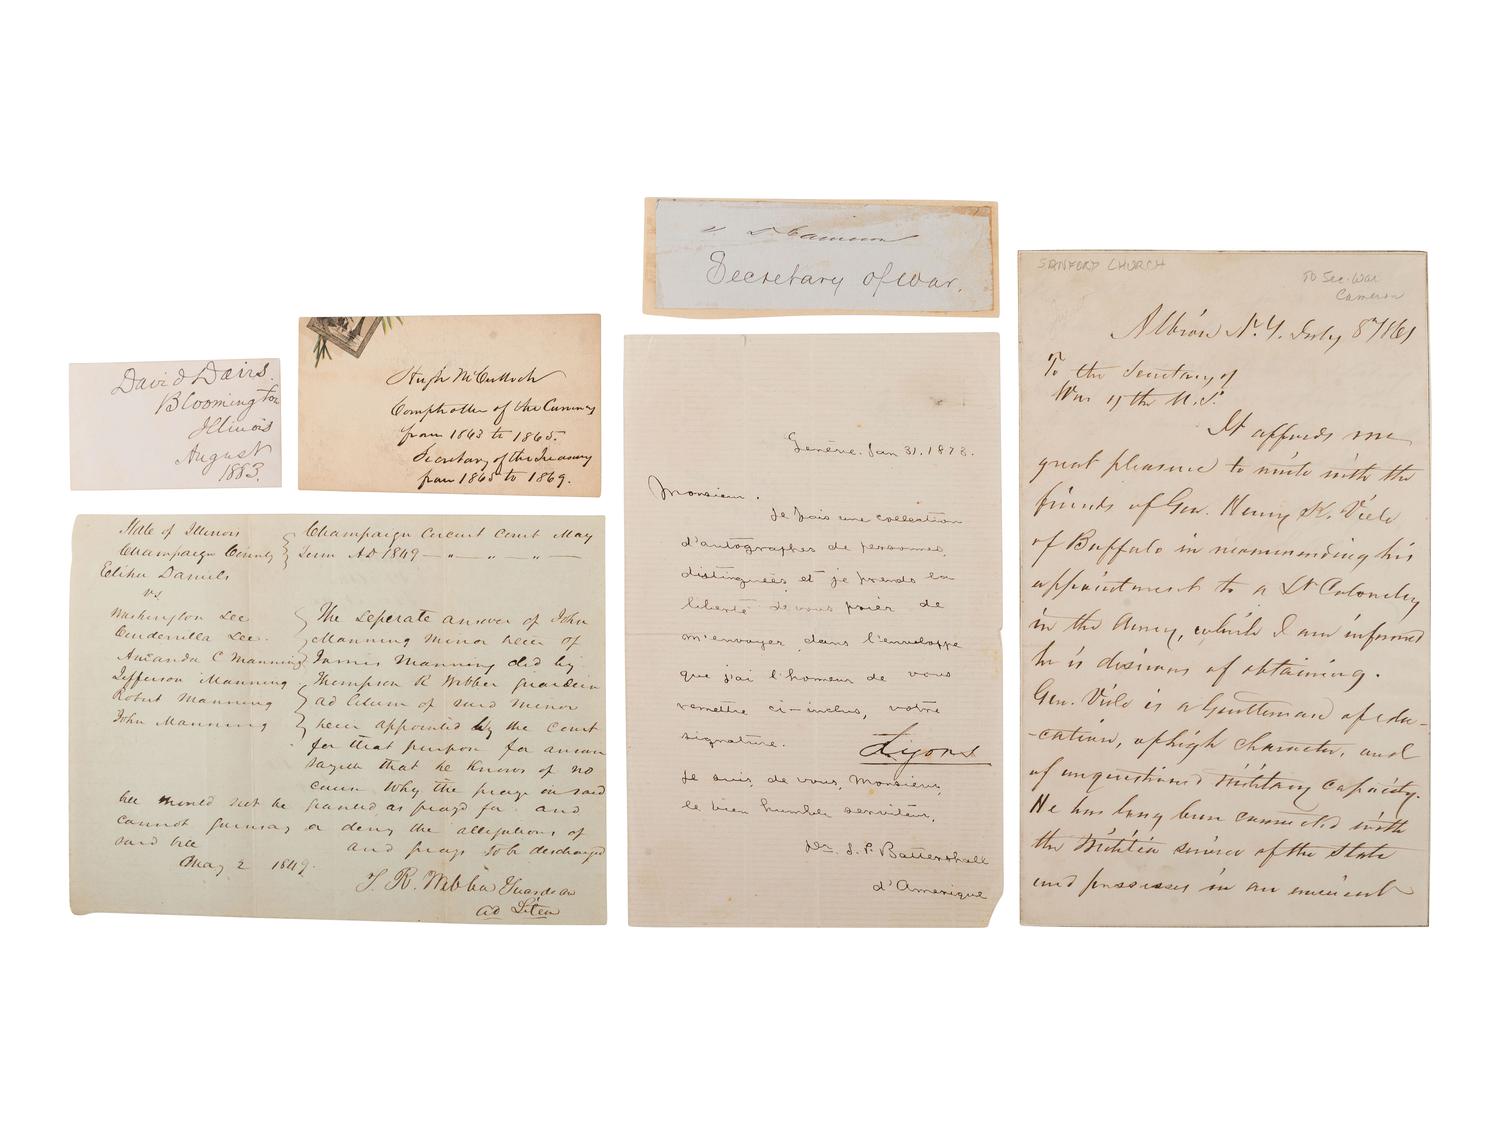 David Davis.
Bloomington
Illinois
August
1883.
Hugh McCulloch
Comptroller of the Currency
from 1863 to 1865.
Secretary of the Treasury
from 1865 to 1869.
Cameron
Secretary of War.
State of Illinois
Champaign County
Champaign Circuit Court May
Term AD 1849 — " — " — " —
Elihu Daniels
vs
Washington Lee
Cinderrilla Lee.
Amanda C Manning
Jefferson Manning
Robert Manning
John Manning
The Seperate answer of John
Manning minor heir of
James Manning decd by
Thompson R Webber guardian
ad litum of said minor
been appointed by the Court
for that purpose for answer
sayeth that he Knows of no
cause why the prayer in said
bill should not be granted as prayd for and
cannot gainsay or deny the allegations of
said bill and prays to be discharged
May 2 1849.
T. R. Webber Guardian
ad Litem
Genève. Jan 31. 1873.
Monsieur.
Je fais une collection
d'autographes de personnes
distinguées et je prends la
liberté de vous prier de
m'envoyer dans l'enveloppe
que j'ai l'honneur de vous
remettre ci-inclus, votre
signature.
Lyons
Je suis, de vous, Monsieur,
le bien humble serviteur,
Dr. S. P. Battershall
d'Amerique
SANFORD CHURCH
TO Sec. War
Cameron
Albion N.Y. July 8th/1861
To the Secretary of
War of the U.S.
It affords me
great pleasure to unite with the
friends of Gen. Henry K. Viele
of Buffalo in recommending his
appointment to a Lt Colonelcy
in the Army, which I am informed
he is desirous of obtaining.
Gen. Viele is a Gentleman of edu-
-cation, of high character, and
of unquestioned Military capacity.
He has long been connected with
the Militia service of the State
and possesses in an eminent